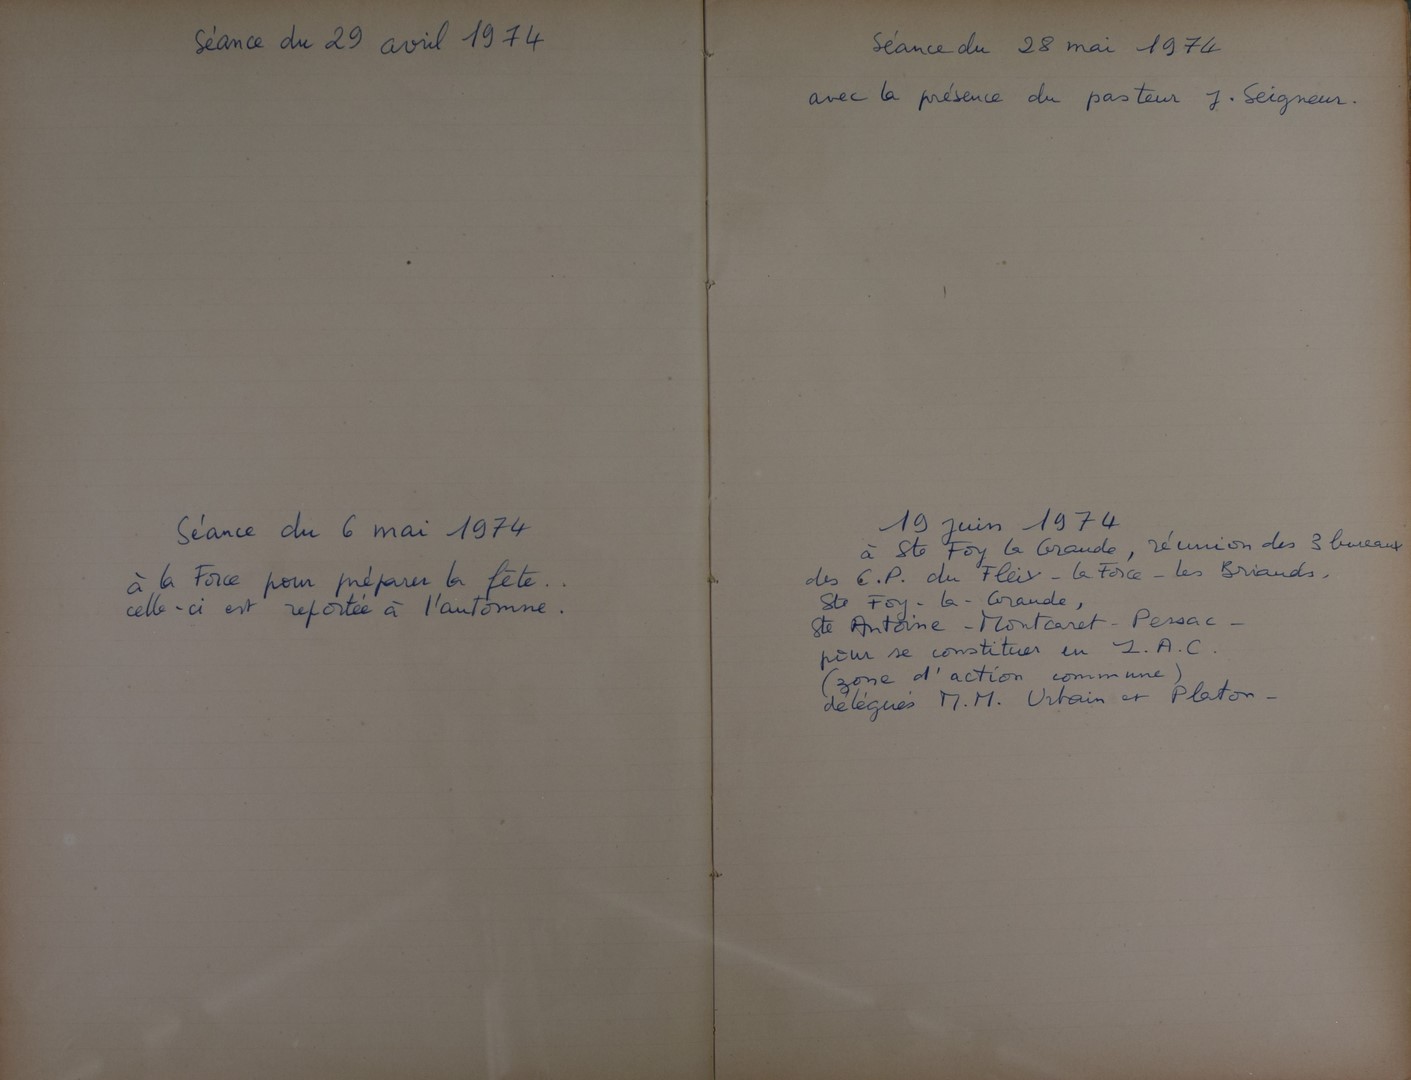 Séance du 29 avril 1974
Séance du 6 mai 1974
à la Force pour préparer la fête..
celle-ci est reportée à l'automne.
Séance du 28 mai 1974
avec la présence du pasteur J. Seigneur.
19 juin 1974
à Ste Foy la Grande, réunion des 3 bureaux
des C.P. du Fleix - la Force - les Briands.
Ste Foy-la-Grande,
Ste Antoine - Montcaret - Pessac -
pour se constituer en Z.A.C.
(zone d'action commune)
délégués M.M. Urbain et Platon -